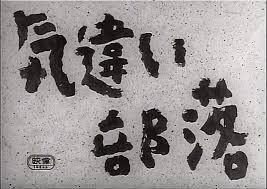 気違い
部落
映倫